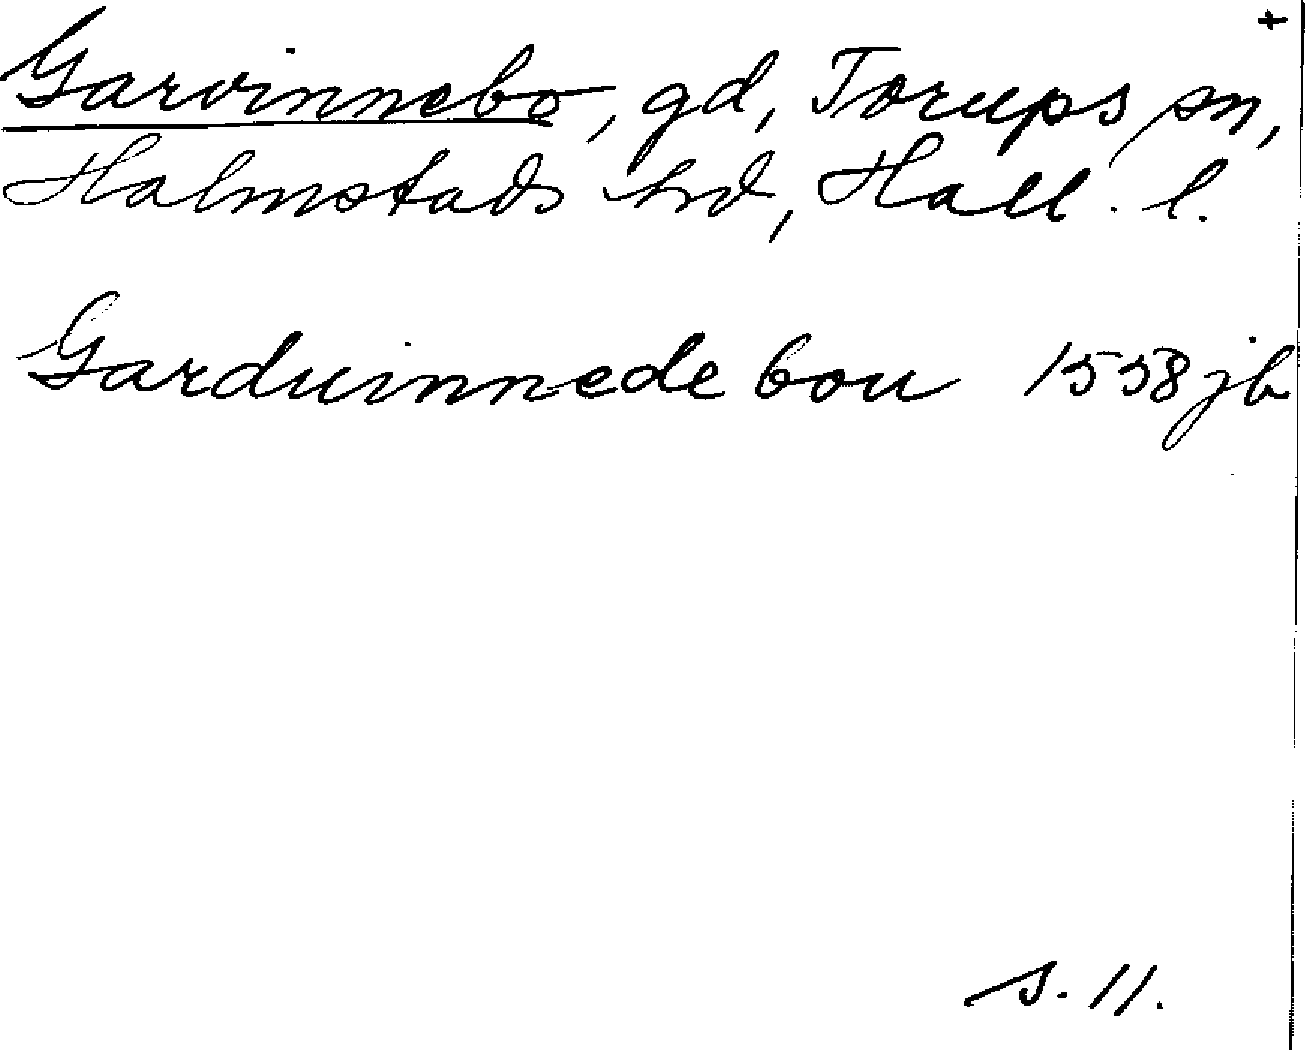 +
Garvinnebo, gd, Torups sn,
Halmstads hd, Hall. l.
Garduinnede bou 1558 jb
s. 11.